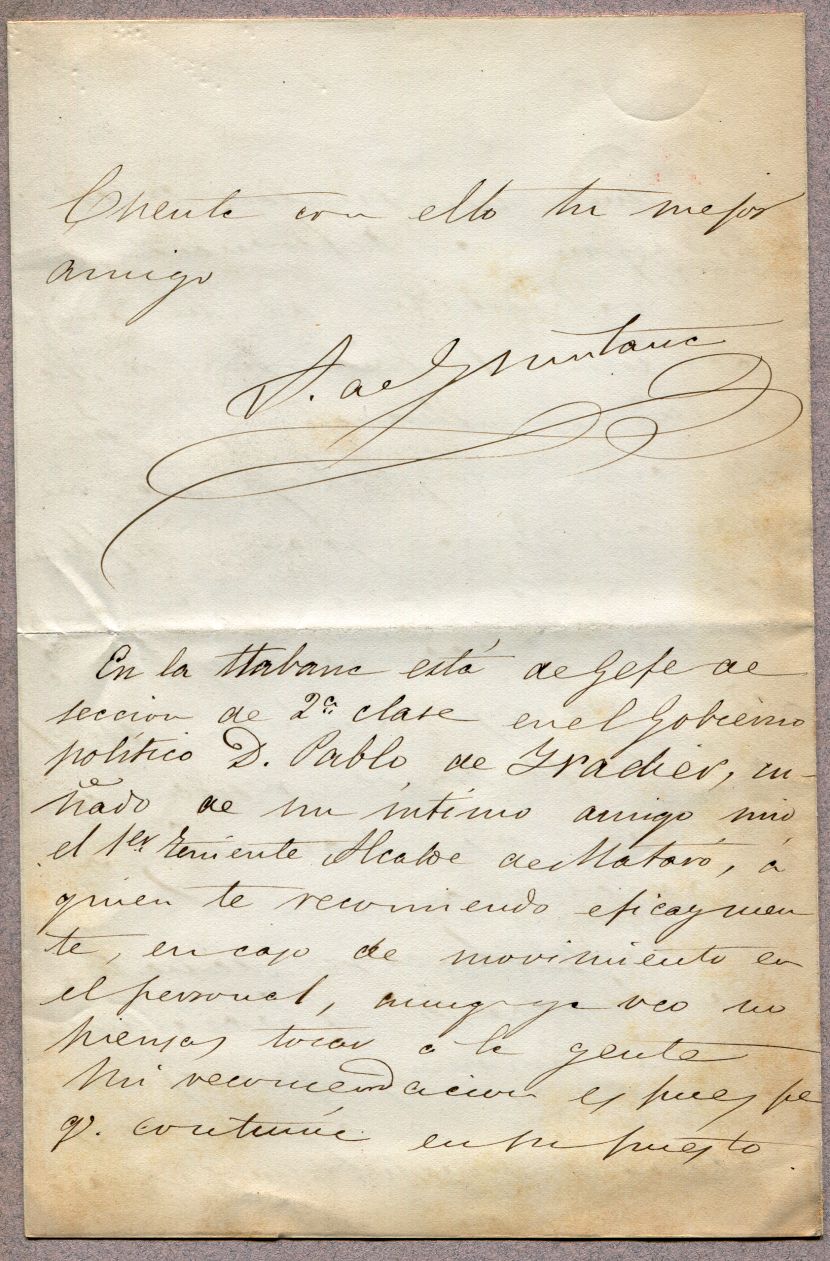 Cuente con ello tu mejor
amigo
S. de Quintana
En la Habana está de Gefe de
seccion de 2ª clase en el Gobierno
político D. Pablo de Yradier, cu-
ñado de un íntimo amigo mio
el 1er Teniente Alcalde de Mataró, á
quien te recomiendo eficazmen
te, en caso de movimiento en
el personal, aunq. ya veo no
piensas tocar á la gente
Mi recomendacion es pues pa
q. continúe en su puesto